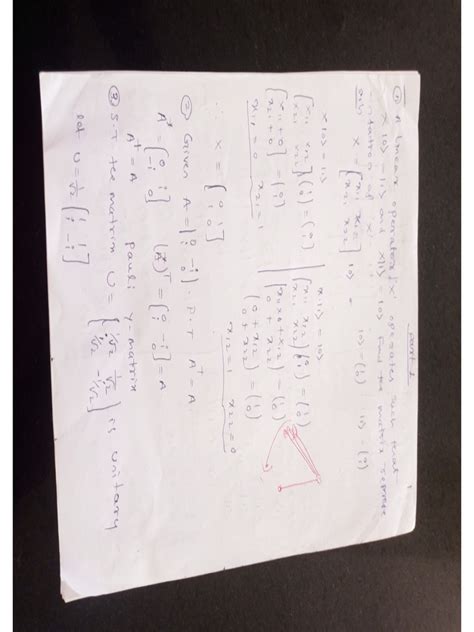 Part-2
① A linear operator 'X' operates such that
X|0> = |1> and X|1> = |0> find the matrix represe
-ntation of 'X'.
X = [x11 x12
x21 x22] |0> = (1
0) |1> = (0
1)
X|0> = |1>
[x11 x12
x21 x22] (1
0) = (0
1)
[x11+0
x21+0] = (0
1)
x11 = 0 x21 = 1
X|1> = |0>
[x11 x12
x21 x22] (0
1) = (1
0)
(0+x12
0+x22) = (1
0)
x12 = 1 x22 = 0
X = [0 1
1 0]
② Given A = [0 -i
i 0]. P.T A† = A
A* = [0 i
-i 0] (A*)ᵀ = [0 -i
i 0] = A
A† = A pauli Y-matrix
③ S.T the matrix U = [1/√2 1/√2
1/√2 -1/√2] is unitary
let U = 1/√2 [1 1
1 -1]